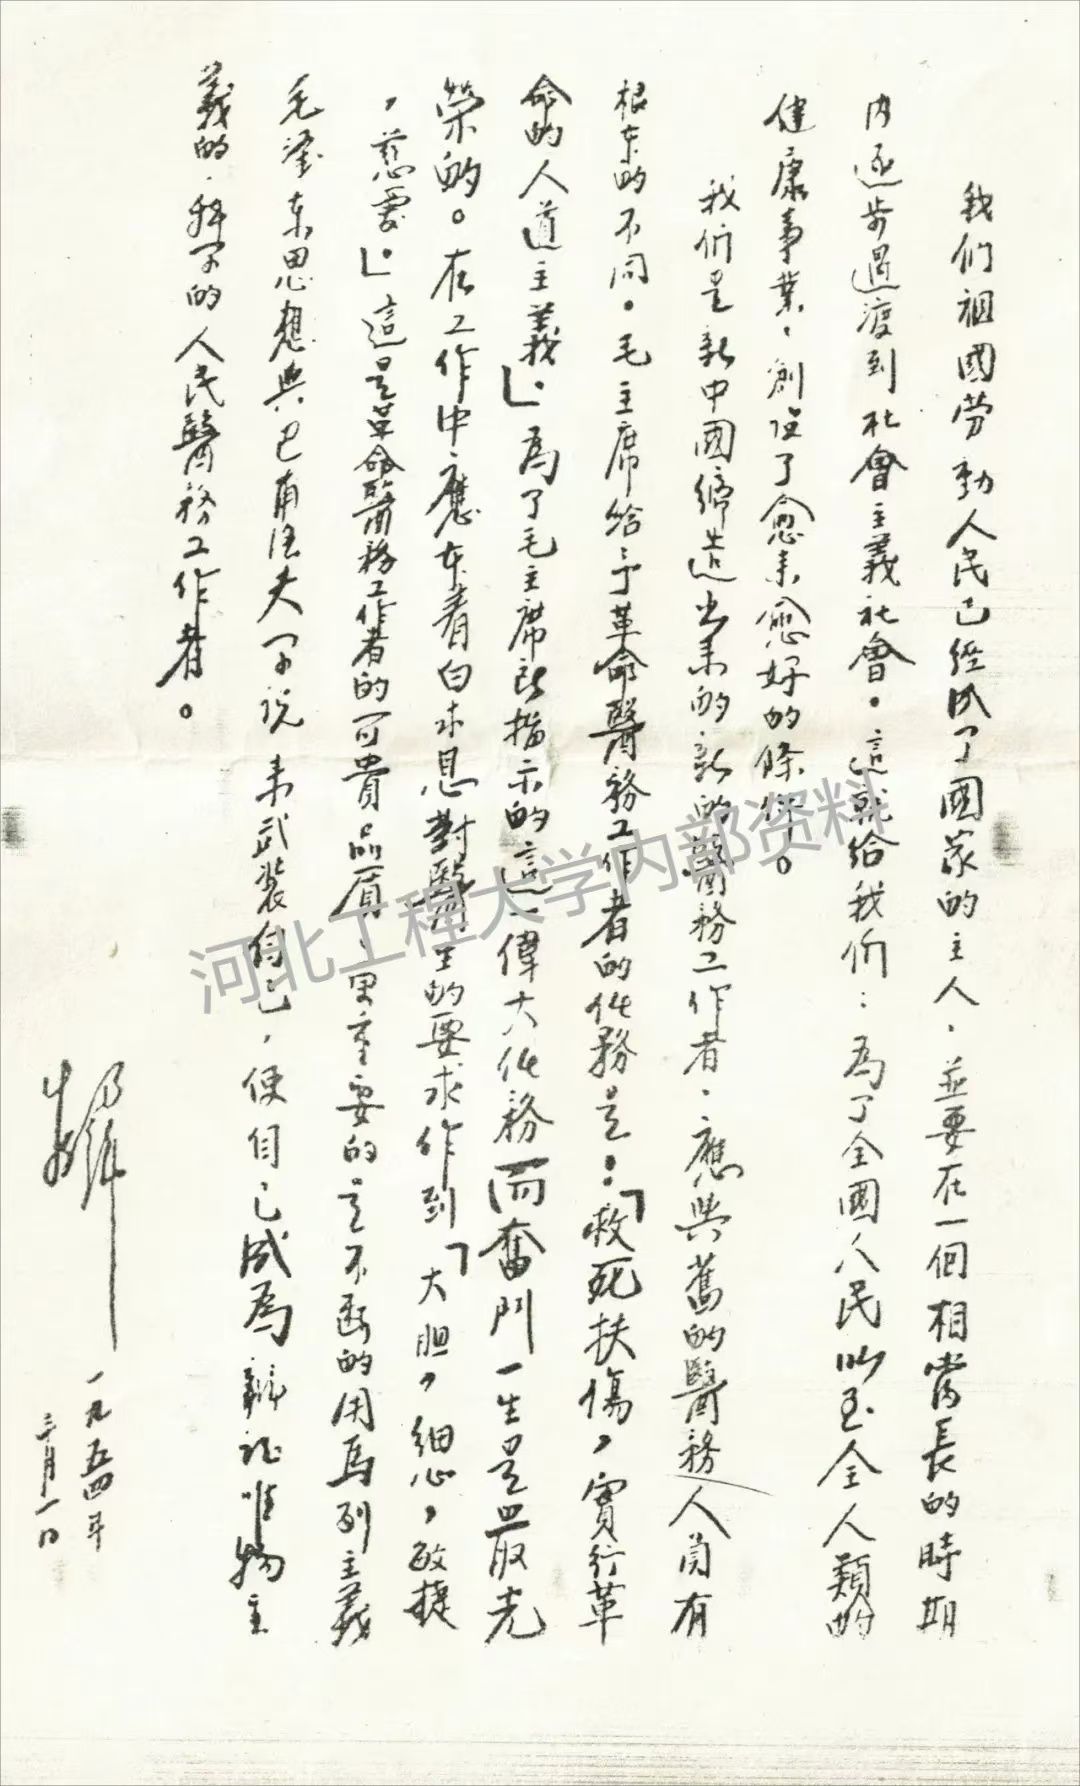 我们祖國劳動人民已經成了國家的主人，並要在一個相當長的時期
内逐步過渡到社會主義社會。這就给我們：為了全國人民以至全人類的
健康事業，創設了愈来愈好的條件。
我們是新中國締造出来的新的醫務工作者，應與舊的醫務人員有
根本的不同。毛主席给予革命醫務工作者的任務是：「救死扶傷，實行革
命的人道主義」，為了毛主席所指示的這一偉大任務而奮鬥一生是最光
榮的。在工作中應本着白求恩對醫生的要求作到「大胆，細心，敏捷
，慈靄」。這是革命醫務工作者的可貴品質，更重要的是不断的用馬列主義
毛澤东思想與巴甫洛夫学说来武裝自己，使自己成為辯証唯物主
義的，科学的人民醫務工作者。
一九五四年
三月一日
河北工程大学内部资料